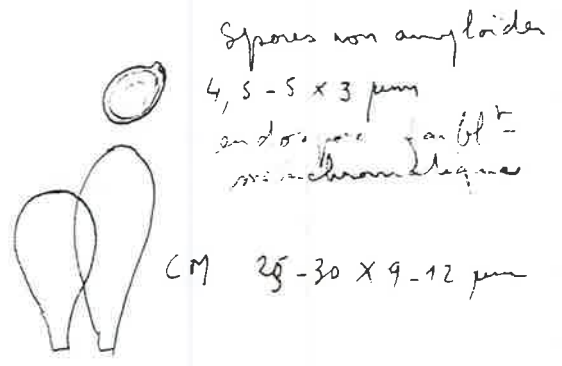 Spores non amyloïdes
4,5-5 x 3 µm
endospore faiblt
métachromatique
CM 25-30 x 9-12 µm